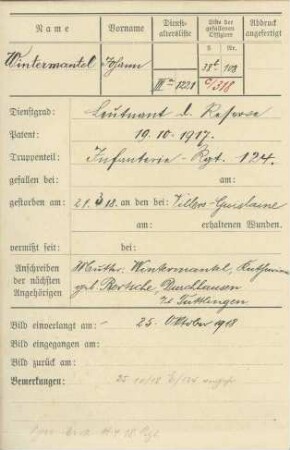 Name Vorname Dienst-altersliste Liste der gefallenen Offiziere Abdruck angefertigt
S. Nr.
Wintermantel Johann 38t 108
IIIa 1221 c/318
Dienstgrad: Leutnant d. Reserve
Patent: 19.10.1917.
Truppenteil: Infanterie-Rgt. 124.
gefallen bei: am:
gestorben am: 21.3.18. an den bei: Villers-Guislaine
am: erhaltenen Wunden.
vermißt seit: bei:
Anschreiben der nächsten Angehörigen
Mutter: Wintermantel,
geb. Bertsche, Durchhausen
Tuttlingen
Bild einverlangt am: 25. Oktober 1918
Bild eingegangen am:
Bild zurück am:
Bemerkungen: